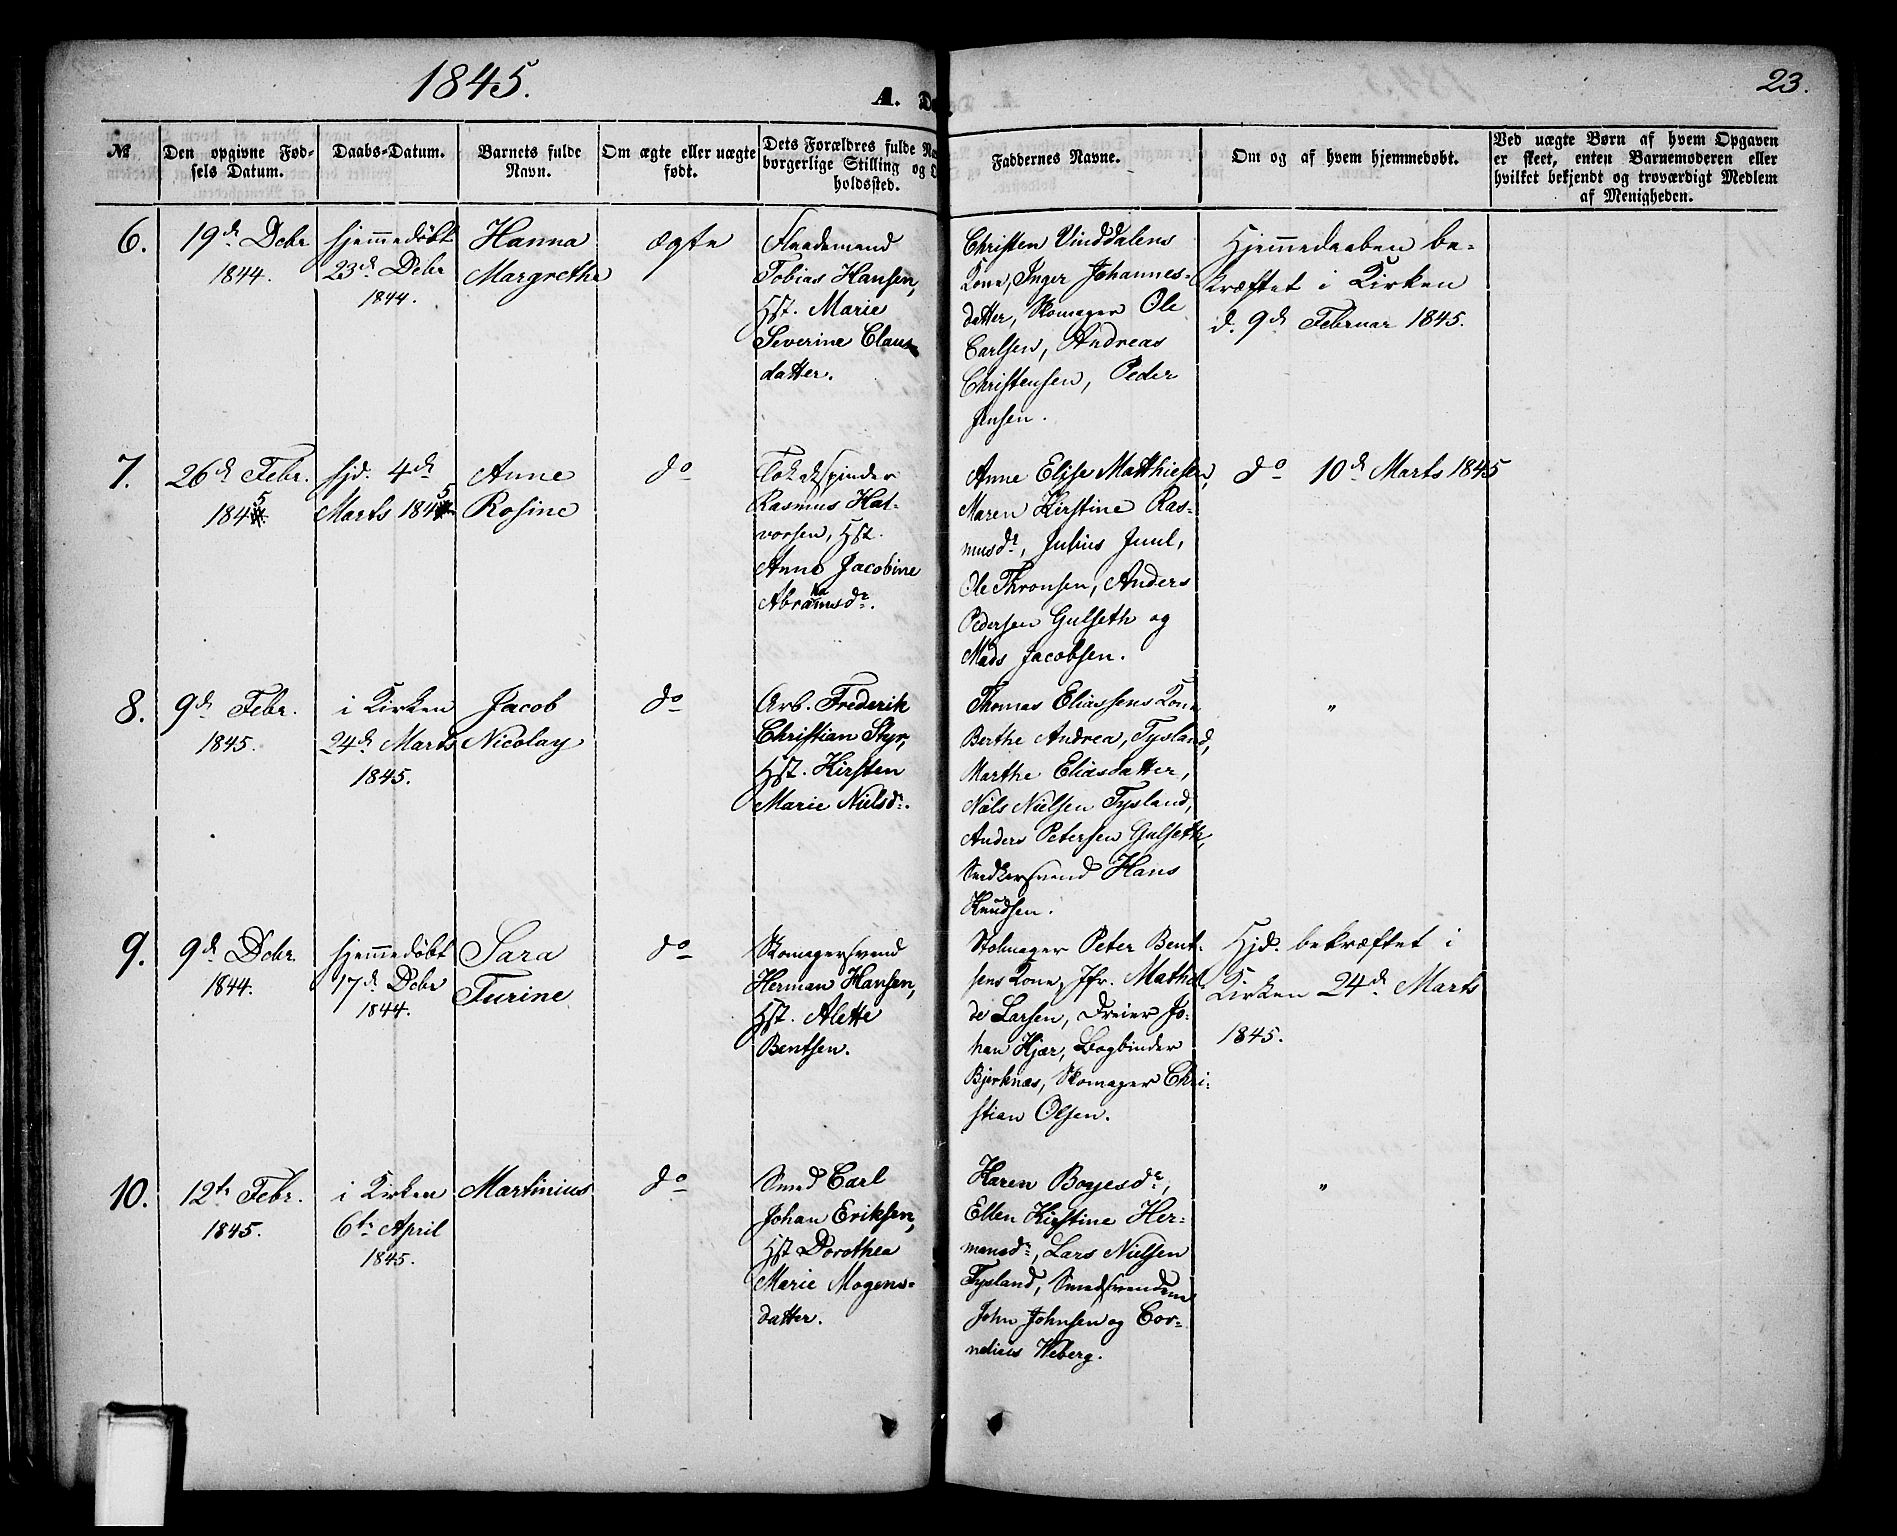 1845.
A. D
23.
№
Den opgivne Fød-
sels Datum.
Daabs-Datum.
Barnets fulde
Navn.
Om ægte eller uægte
født.
Dets Forældres fulde Na
borgerlige Stilling og O
holdssted.
Faddernes Navne.
Om og af hvem hjemmedøbt.
Ved uægte Børn af hvem Opgaven
er skeet, enten Barnemoderen eller
hvilket bekjendt og troværdigt Medlem
af Menigheden.
6.
19de Debr
1844.
hjemmedøbt
23de Debr
1844.
Hanna
Margrethe
ægte
Flaademand
Tobias Hansen,
Hst. Marie
Severine Claus-
datter.
Christen Vinddalens
Kone, Inger Johannes-
datter, Skomager Ole
Carlsen, Andreas
Christensen, Peder
Jensen.
Hjemmedaaben be-
kræftet i Kirken
d. 9de Februar 1845.
7.
26de Febr.
1845
hjd. 4de
Marts 1845
Anne
Rosine
do
Tobakspinder
Rasmus Hal-
vorsen, Hst.
Anne Jacobine
Abrahamsdr.
Anne Elise Matthiesen,
Maren Kirstine Ras-
musdr, Julius Juul,
Ole Thronsen, Anders
Pedersen Gulseth og
Mads Jacobsen.
do 10de Marts 1845
8.
9de Febr.
1845.
i Kirken
24de Marts
1845.
Jacob
Nicolay
do
Arb. Frederik
Christian Styr,
Hst. Kirsten
Marie Nielsdr.
Thomas Eliassens Kone
Berthe Andrea, Tysland,
Marthe Eliasdatter,
Niels Nielsen Tysland,
Anders Petersen Gulseth,
Snedkersvend Hans
Knudsen.
"
9.
9de Debr.
1844.
hjemmedøbt
17de Debr
1844.
Sara
Turine
do
Skomagersvend
Herman Hansen,
Hst. Alette
Bentsen.
Stolmager Peter Bent-
sens Kone, Jfr. Mathil-
de Larsen, Dreier Jo-
han Kjær, Bogbinder
Bjerknæs, Skomager Chri-
stian Olsen.
Hjd. bekræftet i
Kirken 24de Marts
1845.
10.
12te Febr.
1845.
i Kirken
6te April
1845.
Martinius
do
Smed Carl
Johan Eriksen,
Hst Dorothea
Marie Mogens-
datter.
Karen Boyesdr,
Ellen Kirstine Her-
mansdr, Lars Nielsen
Tysland, Smedsvendene
John Johnsen og Cor-
nelius Weberg.
"